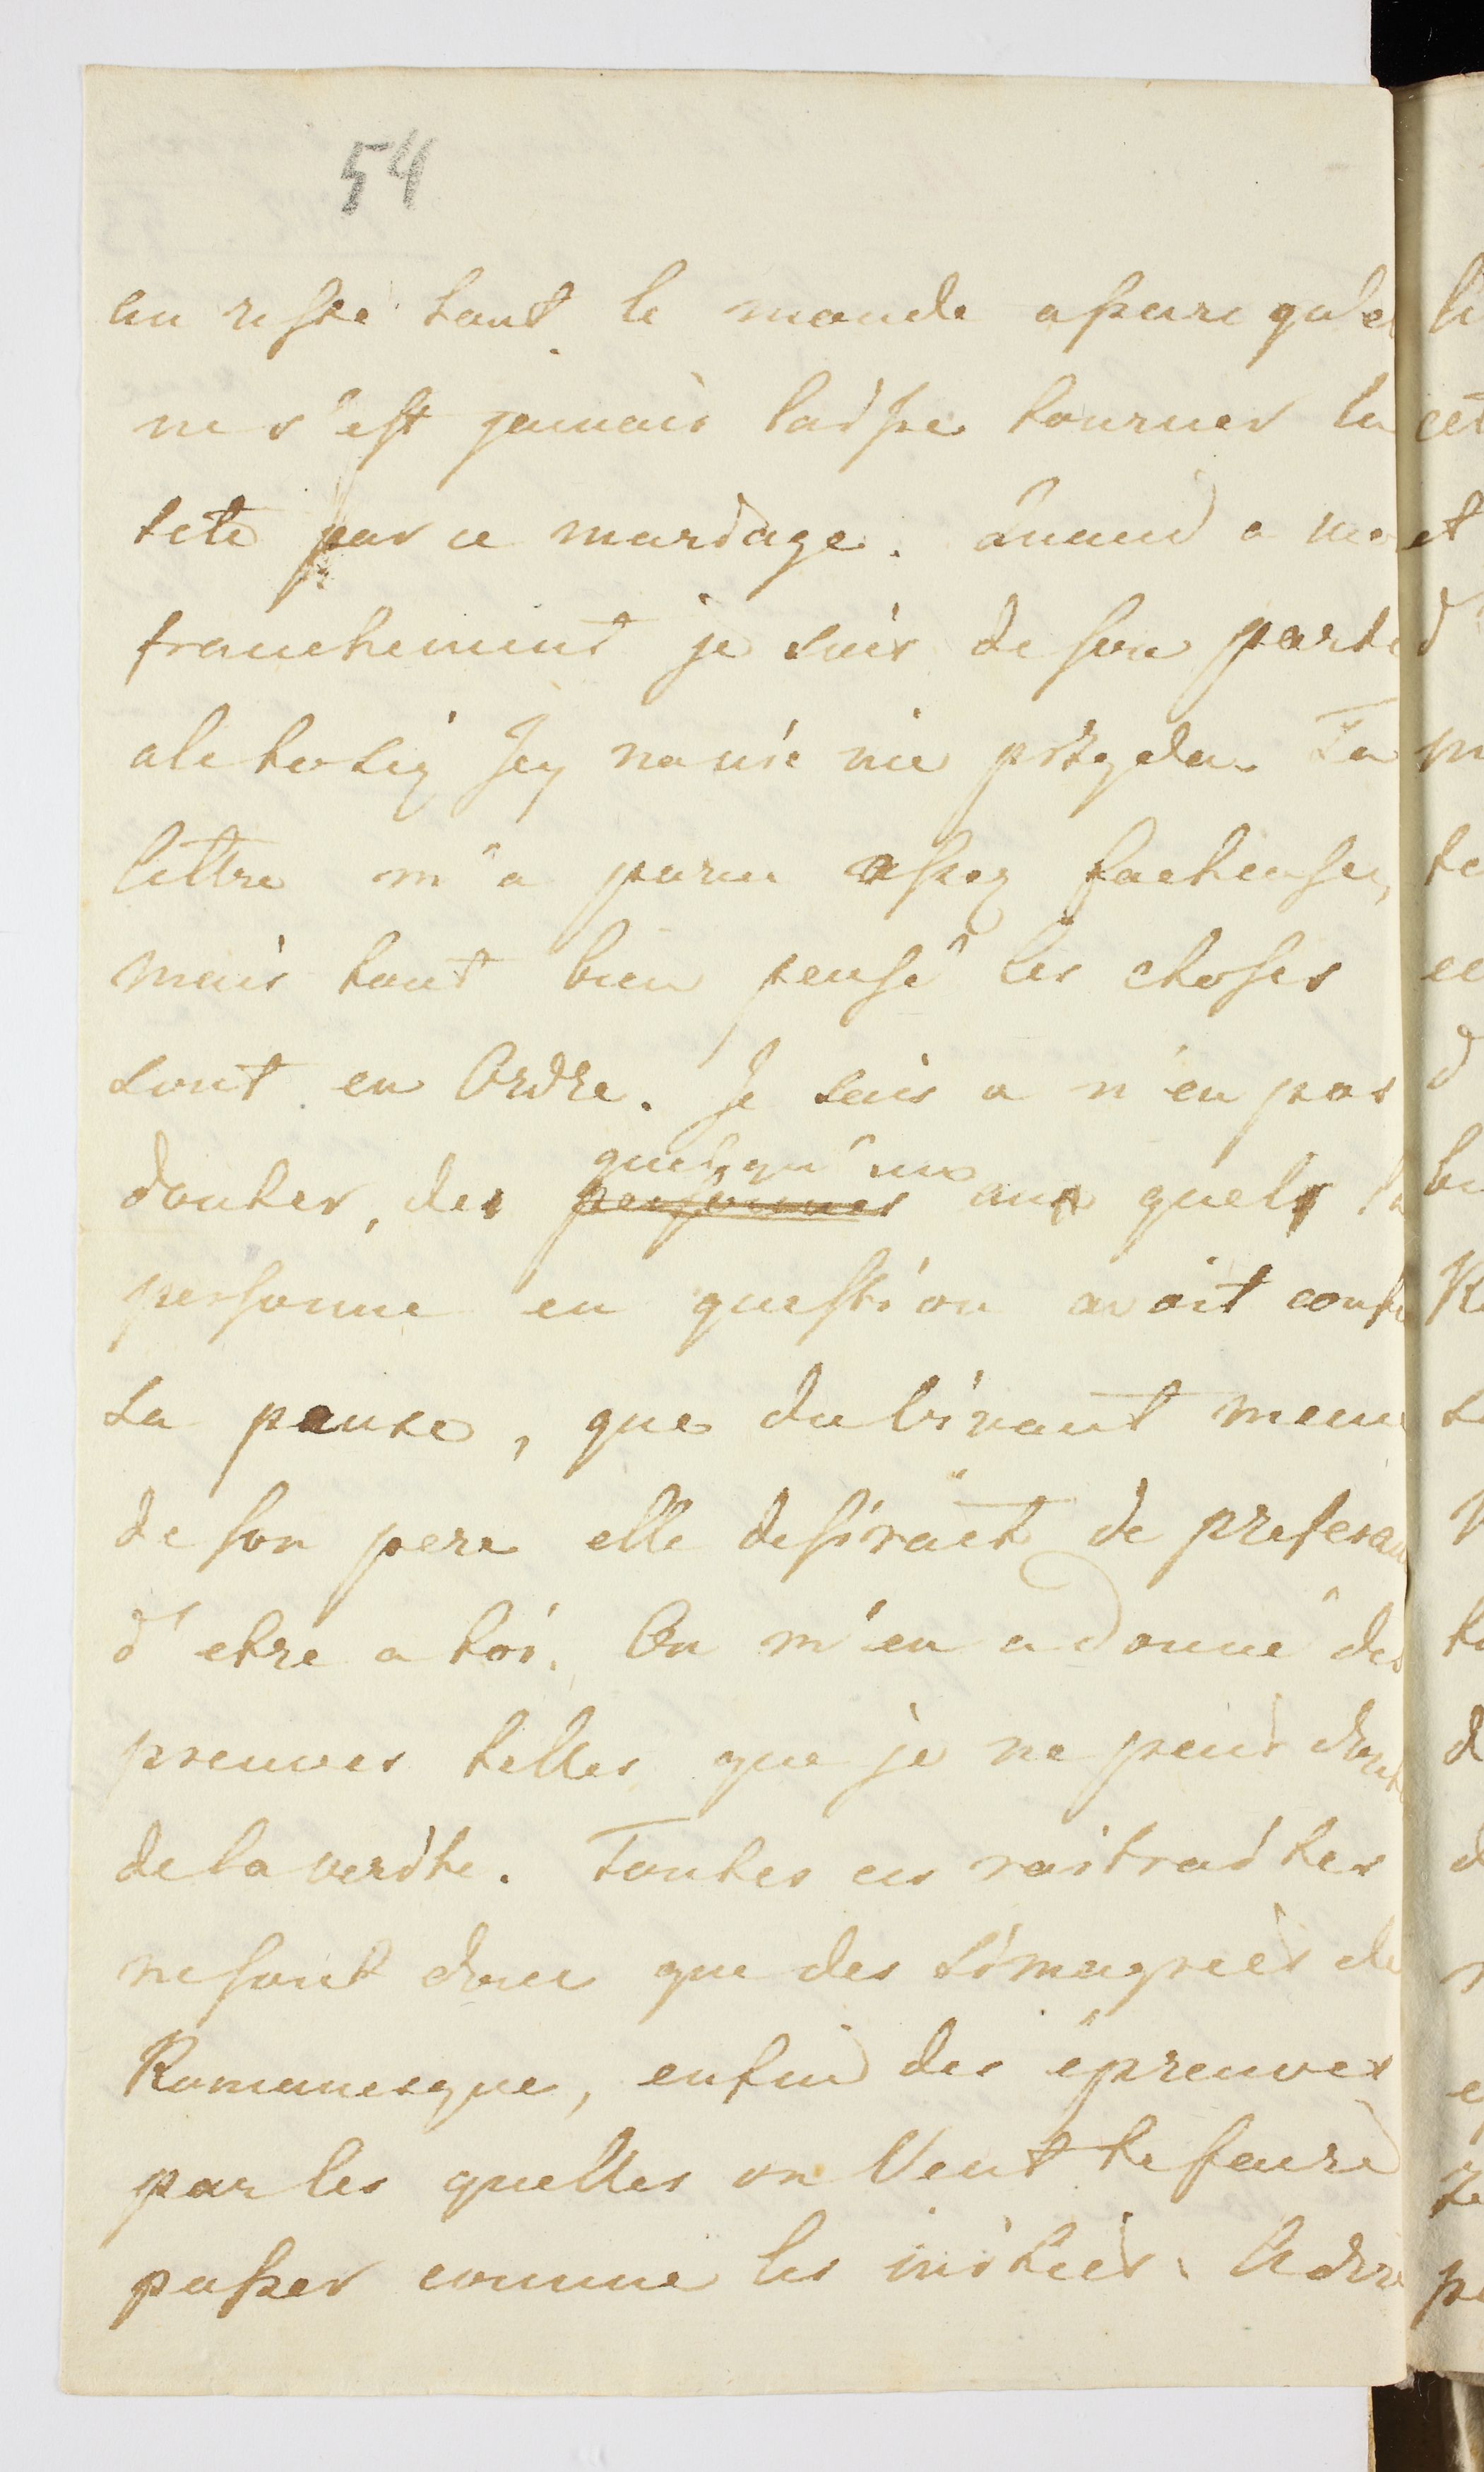 54
au reste tout le monde assure qu'el
ne s'est jamais laisse tourner la
tete par ce mariage. Quand a moi
franchement je suis de son parti
ale to się Jey na nic nie przyda. Ta
lettre m'a paru assez facheuse,
mais tout bien pensé les choses
sont en Ordre. Je sais a n'en pas
douter, des
quelqu'uns
personnes aux quels la
personne en question avoit confi
sa pensee, que du vivant meme
de son pere elle desirait de preferan
d'etre a toi. On m'en a donné des
preuves telles que je ne peus dout
de la verite. Toutes ces
ne sont donc que des simagrees de
Romanesque, enfin des épreuves
par les quelles on Veut te faire
passer comme les initiés.